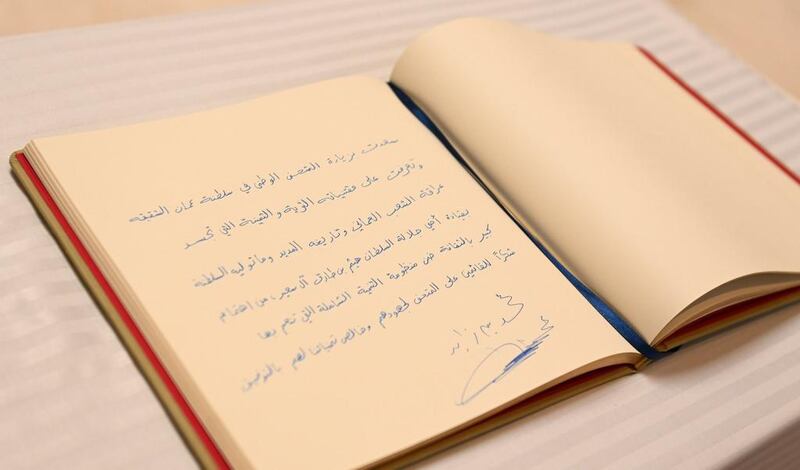 سعدت بزيارة المتحف الوطني في سلطنة عمان الشقيقة
وتعرفت على مقتنياته الثرية والقيمة التي تجسد
عراقة الشعب العماني وتاريخه المديد وما توليه السلطنة
بقيادة أخي جلالة السلطان هيثم بن طارق آل سعيد، من اهتمام
كبير بالثقافة ضمن منظومة التنمية الشاملة التي تنعم بها
شكراً للقائمين على المتحف لجهودهم وخالص تمنياتنا لهم بالتوفيق
محمد بن زايد